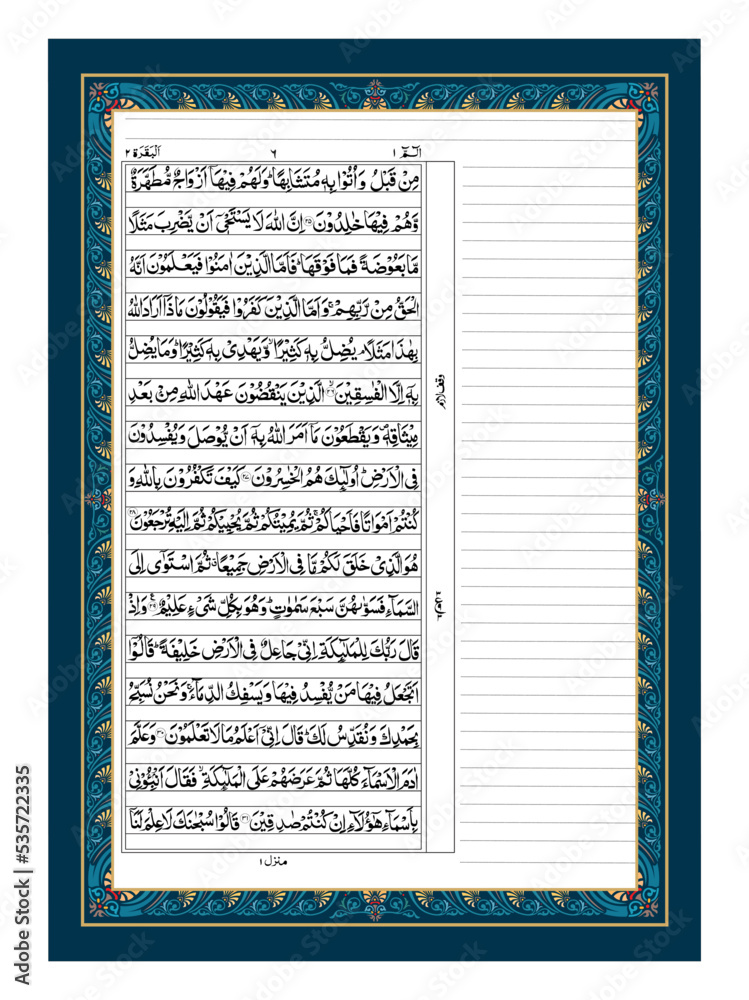 الٓمّٓ ١ ٦ اَلْبَقَرَة ٢
مِنْ قَبْلُ وَاُتُوْا بِهٖ مُتَشَابِهًا ؕ وَلَهُمْ فِيْهَاۤ اَزْوَاجٌ مُّطَهَّرَةٌ
وَّهُمْ فِيْهَا خٰلِدُوْنَ ٢٥ اِنَّ اللّٰهَ لَا يَسْتَحْيٖۤ اَنْ يَّضْرِبَ مَثَلًا
مَّا بَعُوْضَةً فَمَا فَوْقَهَا ؕ فَاَمَّا الَّذِيْنَ اٰمَنُوْا فَيَعْلَمُوْنَ اَنَّهُ
الْحَقُّ مِنْ رَّبِّهِمْ ۚ وَاَمَّا الَّذِيْنَ كَفَرُوْا فَيَقُوْلُوْنَ مَاذَاۤ اَرَادَ اللّٰهُ
بِهٰذَا مَثَلًا ۘ يُضِلُّ بِهٖ كَثِيْرًا ۙ وَّيَهْدِىْ بِهٖ كَثِيْرًا ؕ وَمَا يُضِلُّ
بِهٖۤ اِلَّا الْفٰسِقِيْنَ ٢٦ ۙ الَّذِيْنَ يَنْقُضُوْنَ عَهْدَ اللّٰهِ مِنْۢ بَعْدِ
مِيْثَاقِهٖ ۪ وَيَقْطَعُوْنَ مَاۤ اَمَرَ اللّٰهُ بِهٖۤ اَنْ يُّوْصَلَ وَيُفْسِدُوْنَ
فِى الْاَرْضِ ؕ اُولٰٓئِكَ هُمُ الْخٰسِرُوْنَ ٢٧ كَيْفَ تَكْفُرُوْنَ بِاللّٰهِ وَ
كُنْتُمْ اَمْوَاتًا فَاَحْيَاكُمْ ۚ ثُمَّ يُمِيْتُكُمْ ثُمَّ يُحْيِيْكُمْ ثُمَّ اِلَيْهِ تُرْجَعُوْنَ ٢٨
هُوَ الَّذِىْ خَلَقَ لَكُمْ مَّا فِى الْاَرْضِ جَمِيْعًا ۗ ثُمَّ اسْتَوٰۤى اِلَى
السَّمَآءِ فَسَوّٰىهُنَّ سَبْعَ سَمٰوٰتٍ ؕ وَهُوَ بِكُلِّ شَىْءٍ عَلِيْمٌ ٢٩ وَاِذْ
قَالَ رَبُّكَ لِلْمَلٰٓئِكَةِ اِنِّىْ جَاعِلٌ فِى الْاَرْضِ خَلِيْفَةً ؕ قَالُوْۤا
اَتَجْعَلُ فِيْهَا مَنْ يُّفْسِدُ فِيْهَا وَيَسْفِكُ الدِّمَآءَ ۚ وَنَحْنُ نُسَبِّحُ
بِحَمْدِكَ وَنُقَدِّسُ لَكَ ؕ قَالَ اِنِّىْۤ اَعْلَمُ مَا لَا تَعْلَمُوْنَ ٣٠ وَعَلَّمَ
اٰدَمَ الْاَسْمَآءَ كُلَّهَا ثُمَّ عَرَضَهُمْ عَلَى الْمَلٰٓئِكَةِ ۙ فَقَالَ اَنْۢبِـُٔوْنِىْ
بِاَسْمَآءِ هٰٓؤُلَآءِ اِنْ كُنْتُمْ صٰدِقِيْنَ ٣١ قَالُوْا سُبْحٰنَكَ لَا عِلْمَ لَنَاۤ
وقف لازم
منزل ١
Adobe Stock | #535722335